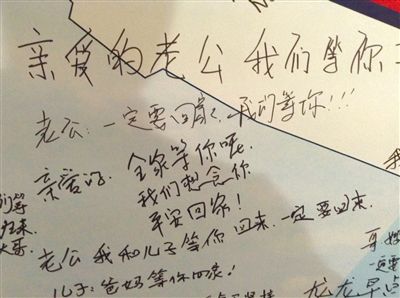 亲爱的老公 我们等你
老公：一定要回家，我们等你!!!
亲爱的：全家等你呢
我们想念你
平安回家！
老公 我和儿子等你回来，一定要回来
儿子：爸妈等你回家！
大哥
一定要
龙龙早点